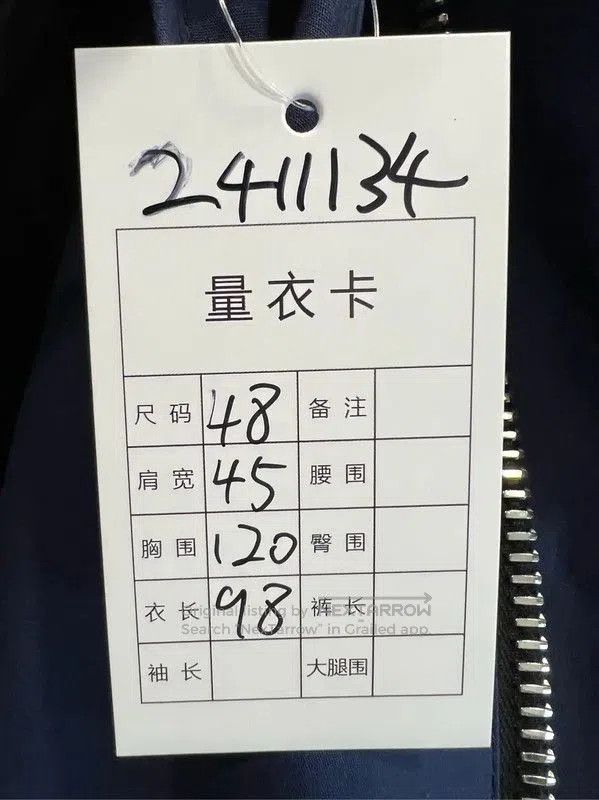 2411134
量衣卡
尺码 48 备注
肩宽 45 腰围
胸围 120 臀围
衣长 98 裤长
Original listing by NEXTARROW
Search "NexTarrow" in Grailed app
袖长 大腿围